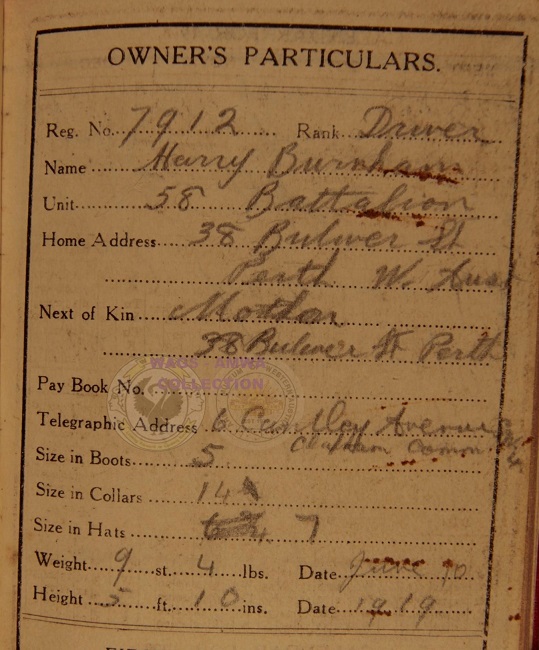 OWNER'S PARTICULARS.
Reg. No. 7912 Rank Driver
Name Harry Burnham
Unit 58 Battalion
Home Address 38 Bulwer St
Perth W. Aust
Next of Kin Mother
38 Bulwer St Perth
WAGS AMWA
COLLECTION
Pay Book No.
Telegraphic Address 6 Cantley Avenue
Clapham Common
Size in Boots 5
Size in Collars 14
Size in Hats 7
Weight 9 st. 4 lbs. Date June 10
Height 5 ft. 10 ins. Date 1919